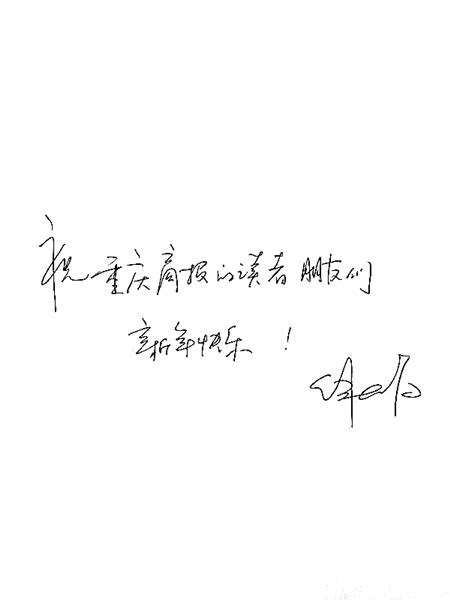 祝重庆商报的读者朋友们
新年快乐！